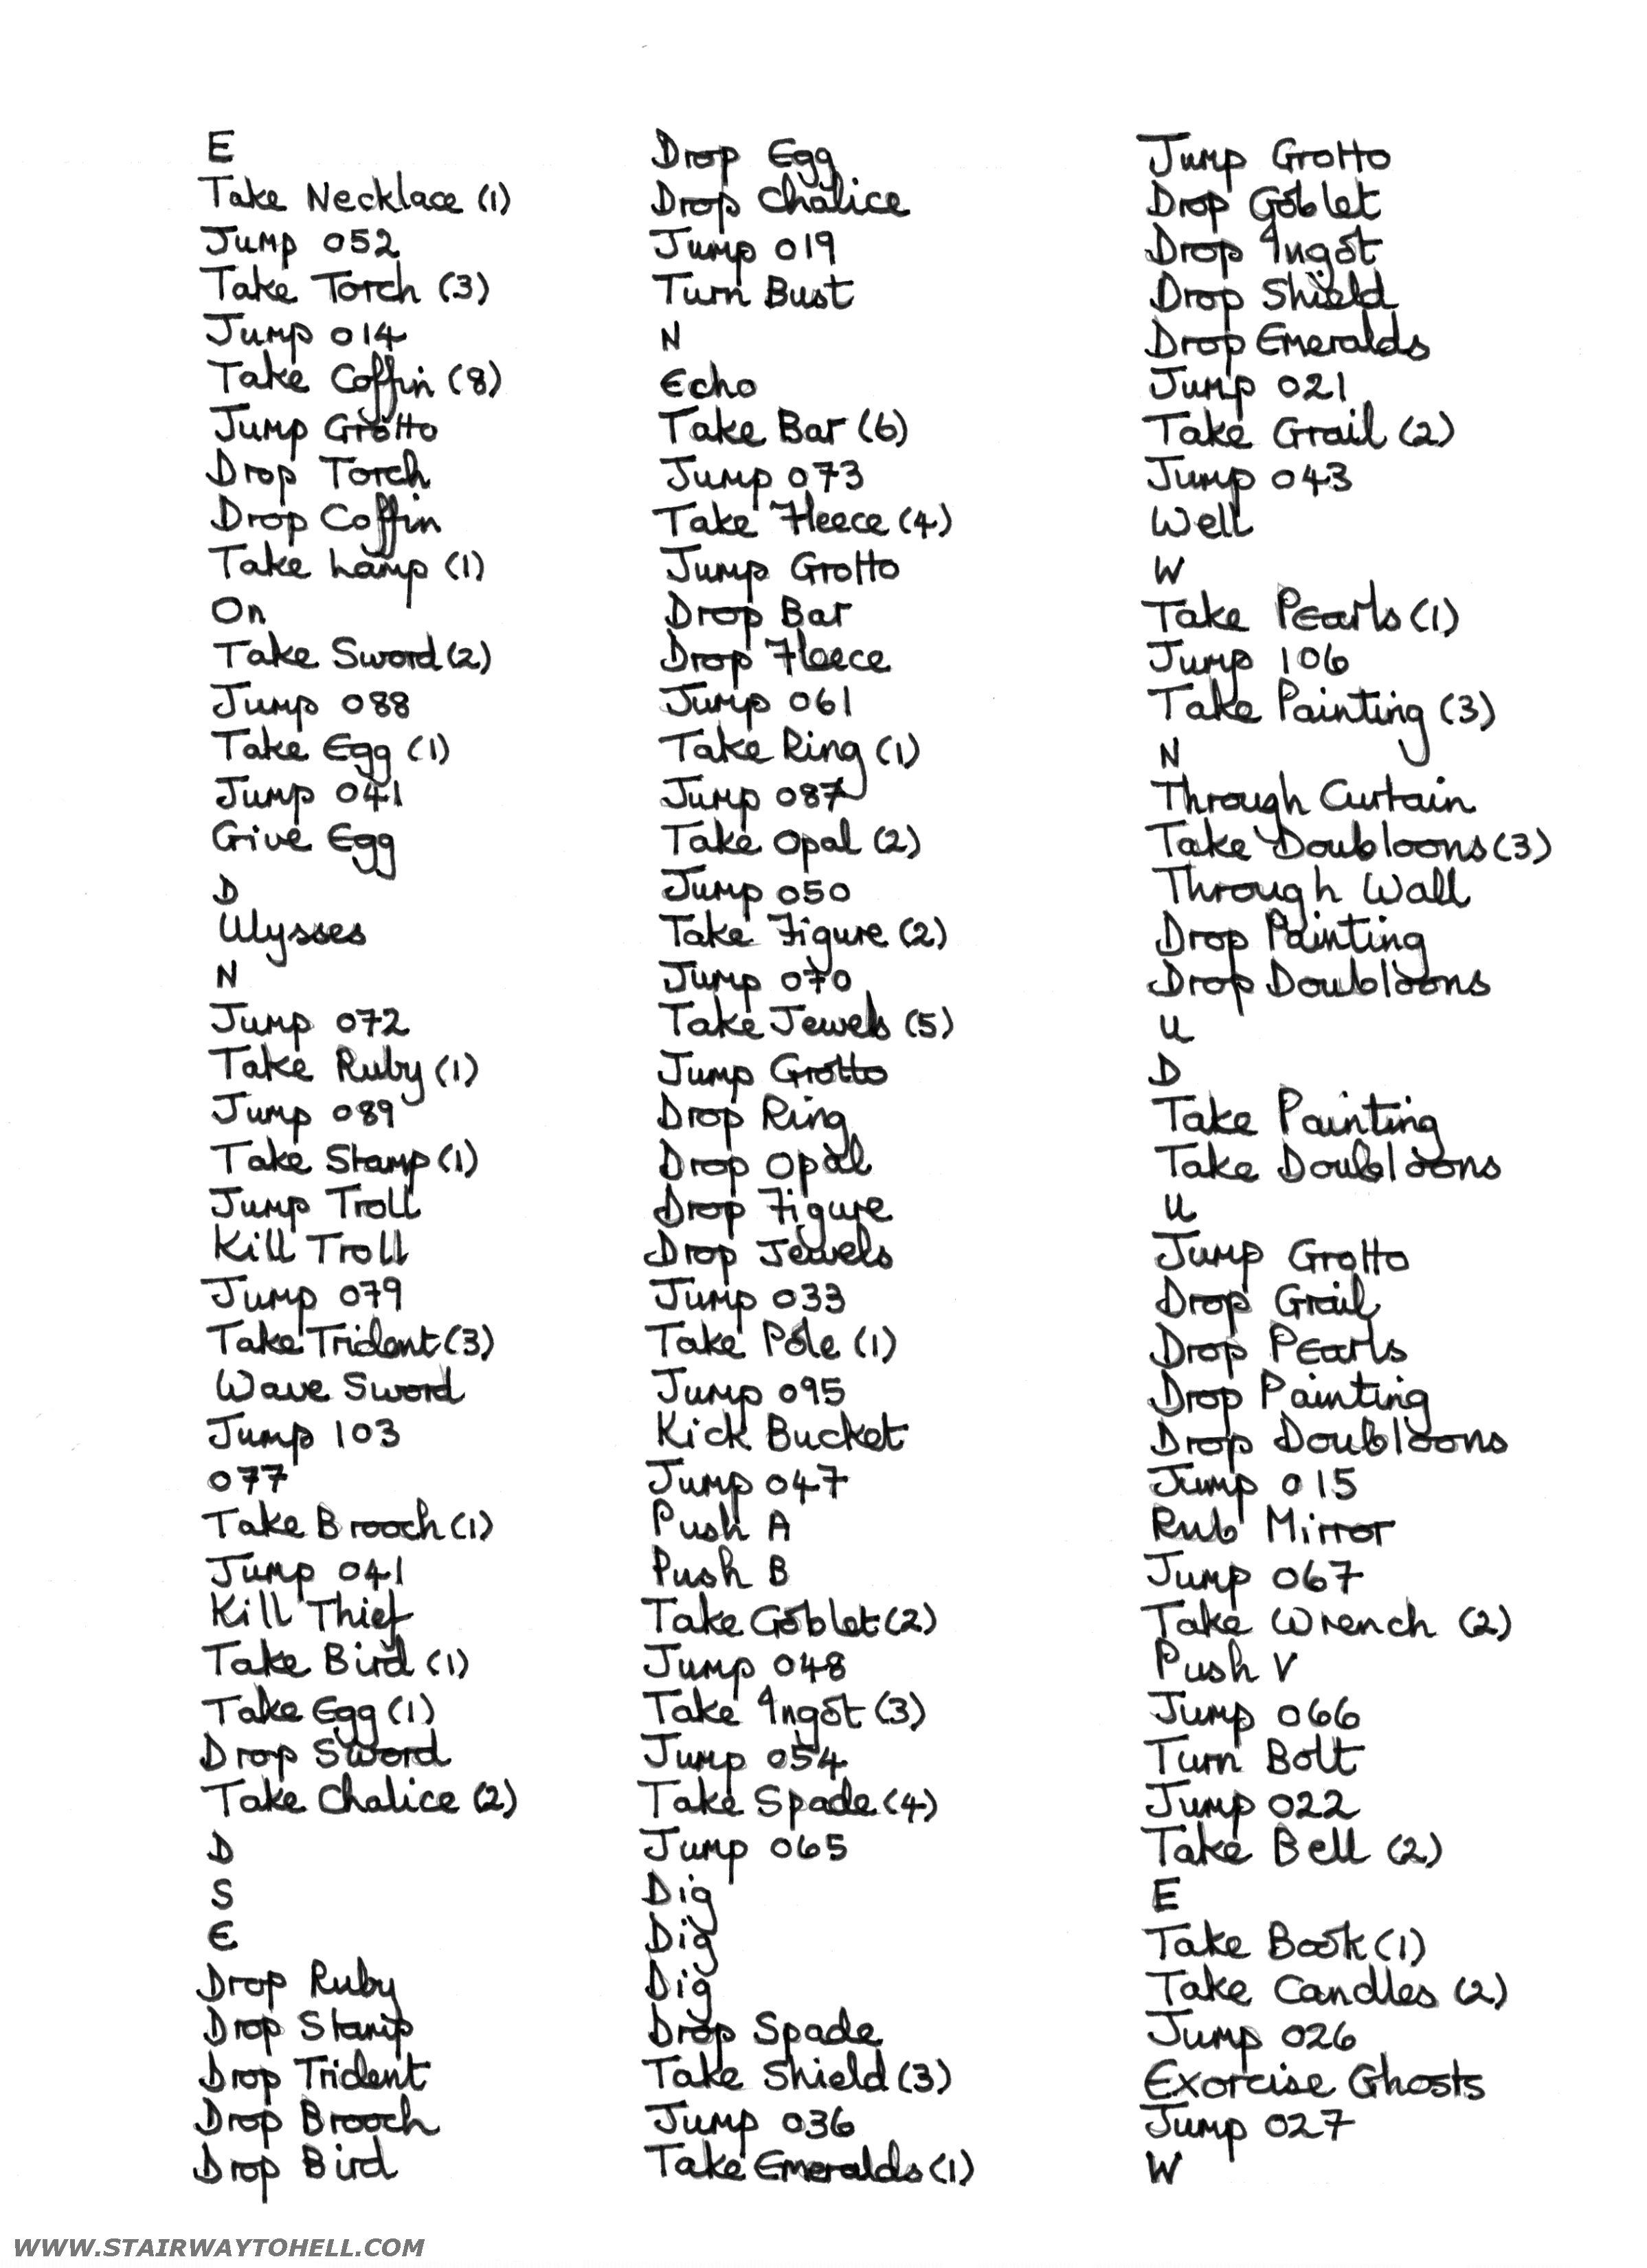 E
Take Necklace (1)
Jump 052
Take Torch (3)
Jump 014
Take Coffin (8)
Jump Grotto
Drop Torch
Drop Coffin
Take Lamp (1)
On
Take Sword (2)
Jump 088
Take Egg (1)
Jump 041
Give Egg
D
Ulysses
N
Jump 072
Take Ruby (1)
Jump 089
Take Stamp (1)
Jump Troll
Kill Troll
Jump 079
Take Trident (3)
Wave Sword
Jump 103
077
Take Brooch (1)
Jump 041
Kill Thief
Take Bird (1)
Take Egg (1)
Drop Sword
Take Chalice (2)
D
S
E
Drop Ruby
Drop Stamp
Drop Trident
Drop Brooch
Drop Bird
Drop Egg
Drop Chalice
Jump 019
Turn Bust
N
Echo
Take Bar (6)
Jump 073
Take Fleece (4)
Jump Grotto
Drop Bar
Drop Fleece
Jump 061
Take Ring (1)
Jump 087
Take Opal (2)
Jump 050
Take Figure (2)
Jump 070
Take Jewels (5)
Jump Grotto
Drop Ring
Drop Opal
Drop Figure
Drop Jewels
Jump 033
Take Pole (1)
Jump 095
Kick Bucket
Jump 047
Push A
Push B
Take Goblet (2)
Jump 048
Take Ingot (3)
Jump 054
Take Spade (4)
Jump 065
Dig
Dig
Dig
Drop Spade
Take Shield (3)
Jump 036
Take Emeralds (1)
Jump Grotto
Drop Goblet
Drop Ingot
Drop Shield
Drop Emeralds
Jump 021
Take Grail (2)
Jump 043
Well
W
Take Pearls (1)
Jump 106
Take Painting (3)
N
Through Curtain
Take Doubloons (3)
Through Wall
Drop Painting
Drop Doubloons
U
D
Take Painting
Take Doubloons
U
Jump Grotto
Drop Grail
Drop Pearls
Drop Painting
Drop Doubloons
Jump 015
Rub Mirror
Jump 067
Take Wrench (2)
Push V
Jump 066
Turn Bolt
Jump 022
Take Bell (2)
E
Take Book (1)
Take Candles (2)
Jump 026
Exorcise Ghosts
Jump 027
W
WWW.STAIRWAYTOHELL.COM